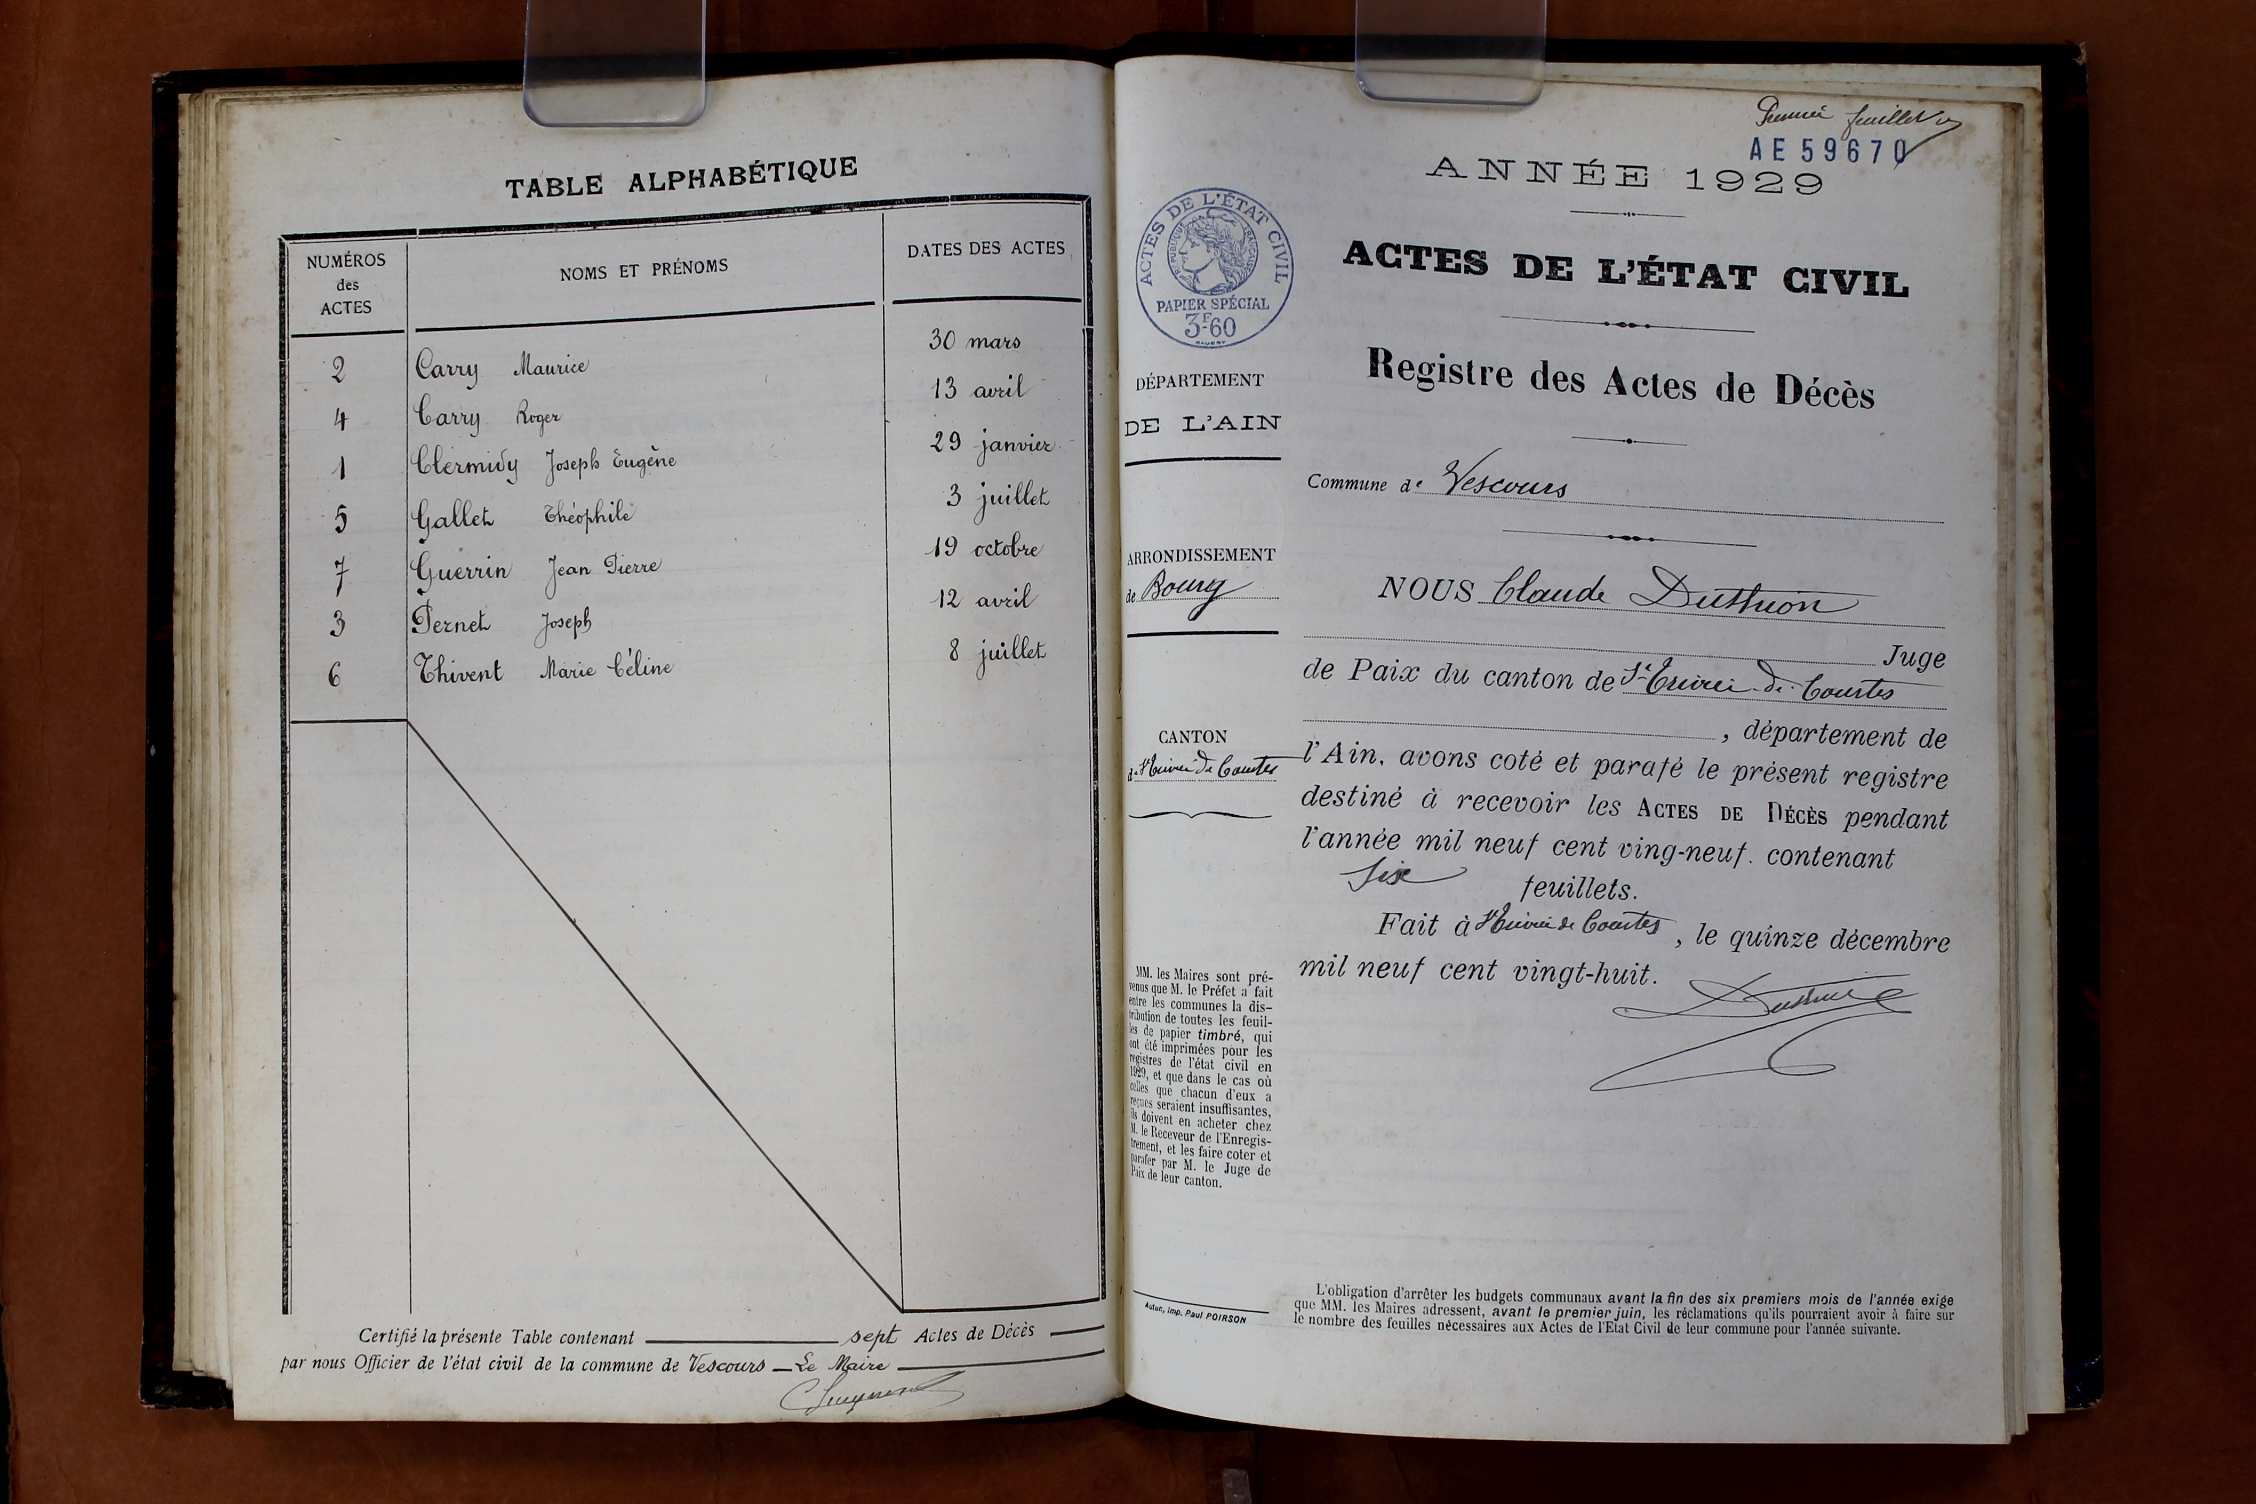 TABLE ALPHABÉTIQUE
NUMÉROS des ACTES
NOMS ET PRÉNOMS
DATES DES ACTES
2 Carry Maurice 30 mars
4 Carry Roger 13 avril
1 Clermidy Joseph Eugène 29 janvier
5 Gallet Théophile 3 juillet
7 Guerrin Jean Pierre 19 octobre
3 Pernet Joseph 12 avril
6 Thivent Marie Céline 8 juillet
Certifié la présente Table contenant sept Actes de Décès
par nous Officier de l'état civil de la commune de Vescours Le Maire
Premier feuillet
AE 59670
ANNÉE 1929
ACTES DE L'ÉTAT CIVIL
RÉPUBLIQUE FRANÇAISE
PAPIER SPÉCIAL
3F60
ACTES DE L'ÉTAT CIVIL
Registre des Actes de Décès
DÉPARTEMENT
DE L'AIN
Commune de Vescours
ARRONDISSEMENT
de Bourg
NOUS Claude
Juge
de Paix du canton de St Trivier-de-Courtes
, département de
CANTON
de St Trivier de Courtes
l'Ain, avons coté et parafé le présent registre
destiné à recevoir les ACTES DE DÉCÈS pendant
l'année mil neuf cent ving-neuf. contenant
six feuillets.
Fait à St Trivier de Courtes, le quinze décembre
mil neuf cent vingt-huit.
MM. les Maires sont pré-
venus que M. le Préfet a fait
entre les communes la dis-
tribution de toutes les feuil-
les de papier timbré, qui
ont été imprimées pour les
registres de l'état civil en
1929, et que dans le cas où
celles que chacun d'eux a
reçues seraient insuffisantes,
ils doivent en acheter chez
M. le Receveur de l'Enregis-
trement, et les faire coter et
parafer par M. le Juge de
Paix de leur canton.
Autun, imp. Paul POIRSON
L'obligation d'arrêter les budgets communaux avant la fin des six premiers mois de l'année exige
que MM. les Maires adressent, avant le premier juin, les réclamations qu'ils pourraient avoir à faire sur
le nombre des feuilles nécessaires aux Actes de l'Etat Civil de leur commune pour l'année suivante.